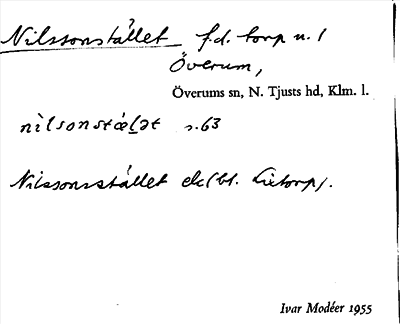 Nilssonstället f.d. torp u. 1
Överum,
Överums sn, N. Tjusts hd, Klm. l.
nìlsonstæ̀lət s.63
Nilssonsstället ek(bl. Lietorp).
Ivar Modéer 1955